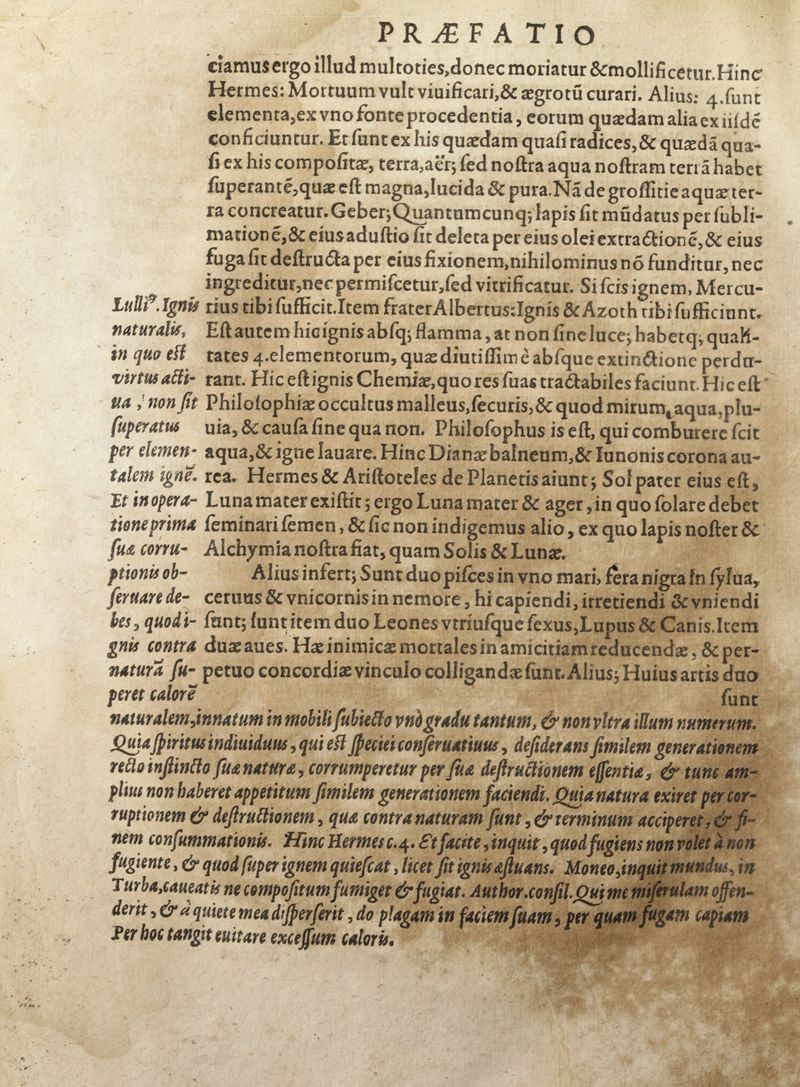 PRÆFATIO
ciamus ergo illud multoties, donec moriatur & mollificetur. Hinc
Hermes: Mortuum vult viuificari, & ægrotū curari. Alius: 4. sunt
elementa, ex vno fonte procedentia, eorum quædam alia ex iisdē
conficiuntur. Et sunt ex his quædam quasi radices, & quædā qua-
si ex his compositæ, terra, aër; sed nostra aqua nostram terrā habet
superantē, quæ est magna, lucida & pura. Nā de grossitie aquæ ter-
ra concreatur. Geber; Quantumcunq; lapis sit mūdatus per subli-
mationē, & eius adustio sit deleta per eius olei extractionē, & eius
fuga sit destructa per eius fixionem, nihilominus nō funditur, nec
ingreditur, nec permiscetur, sed vitrificatur. Si scis ignem, Mercu-
rius tibi sufficit. Item frater Albertus: Ignis & Azoth tibi sufficiunt.
Est autem hic ignis absq; flamma, at non sine luce; habetq; quali-
tates 4. elementorum, quæ diutissimè absque extinctione perdu-
rant. Hic est ignis Chemiæ, quo res suas tractabiles faciunt. Hic est
Philosophiæ occultus malleus, securis, & quod mirum, aqua, plu-
uia, & causa sine qua non. Philosophus is est, qui comburere scit
aqua, & igne lauare. Hinc Dianæ balneum, & Iunonis corona au-
rea. Hermes & Aristoteles de Planetis aiunt; Sol pater eius est,
Luna mater existit; ergo Luna mater & ager, in quo solare debet
seminari semen, & sic non indigemus alio, ex quo lapis noster &
Alchymia nostra fiat, quam Solis & Lunæ.
Alius infert; Sunt duo pisces in vno mari, fera nigra in sylua,
ceruus & vnicornis in nemore, hi capiendi, irretiendi & vniendi
sunt; sunt item duo Leones vtriusque sexus, Lupus & Canis. Item
duæ aues. Hæ inimicæ mortales in amicitiam reducendæ, & per-
petuo concordiæ vinculo colligandæ sunt. Alius; Huius artis duo
sunt
Lulliꝰ. Ignis
naturalis,
in quo est
virtus acti-
ua, non sit
superatus
per elemen-
talem ignē.
Et in opera-
tione prima
suæ corru-
ptionis ob-
seruare de-
bes, quod i-
gnis contra
naturā su-
peret calorē
naturalem, innatum in mobili subiecto vno gradu tantum, & non vltra illum numerum.
Quia spiritus indiuiduus, qui est speciei conseruatiuus, desiderans similem generationem
recto instincto suæ naturæ, corrumperetur per suæ destructionem essentiæ, & tunc am-
plius non haberet appetitum similem generationem faciendi. Quia natura exiret per cor-
ruptionem & destructionem, quæ contra naturam sunt, & terminum acciperet, & fi-
nem consummationis. Hinc Hermes c. 4. Et facite, inquit, quod fugiens non volet à non
fugiente, & quod super ignem quiescat, licet sit ignis æstuans. Moneo, inquit mundus, in
Turba, caueatis ne compositum fumiget & fugiat. Author. consil. Qui me miserulam offen-
derit, & à quiete mea disperserit, do plagam in faciem suam, per quam fugam capiam
Per hoc tangit euitare excessum caloris.